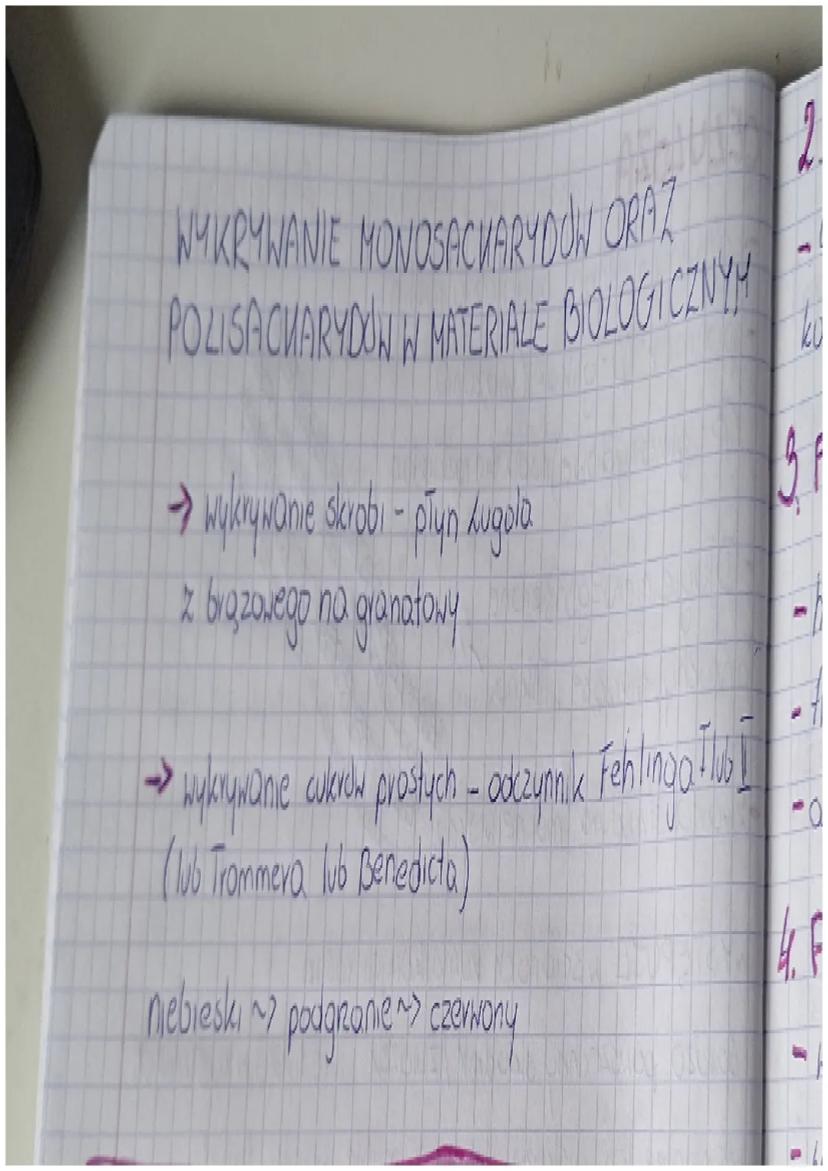 WYKRYWANIE MONOSACHARYDÓW ORAZ
POLISACHARYDÓW W MATERIALE BIOLOGICZNYM
→ wykrywanie skrobi - płyn Lugola
z brązowego na granatowy
→ wykrywanie cukrów prostych - odczynnik Fehlinga I lub II
(lub Trommera lub Benedicta)
niebieski ~> podgrzanie ~> czerwony
2.
3. F
4. F